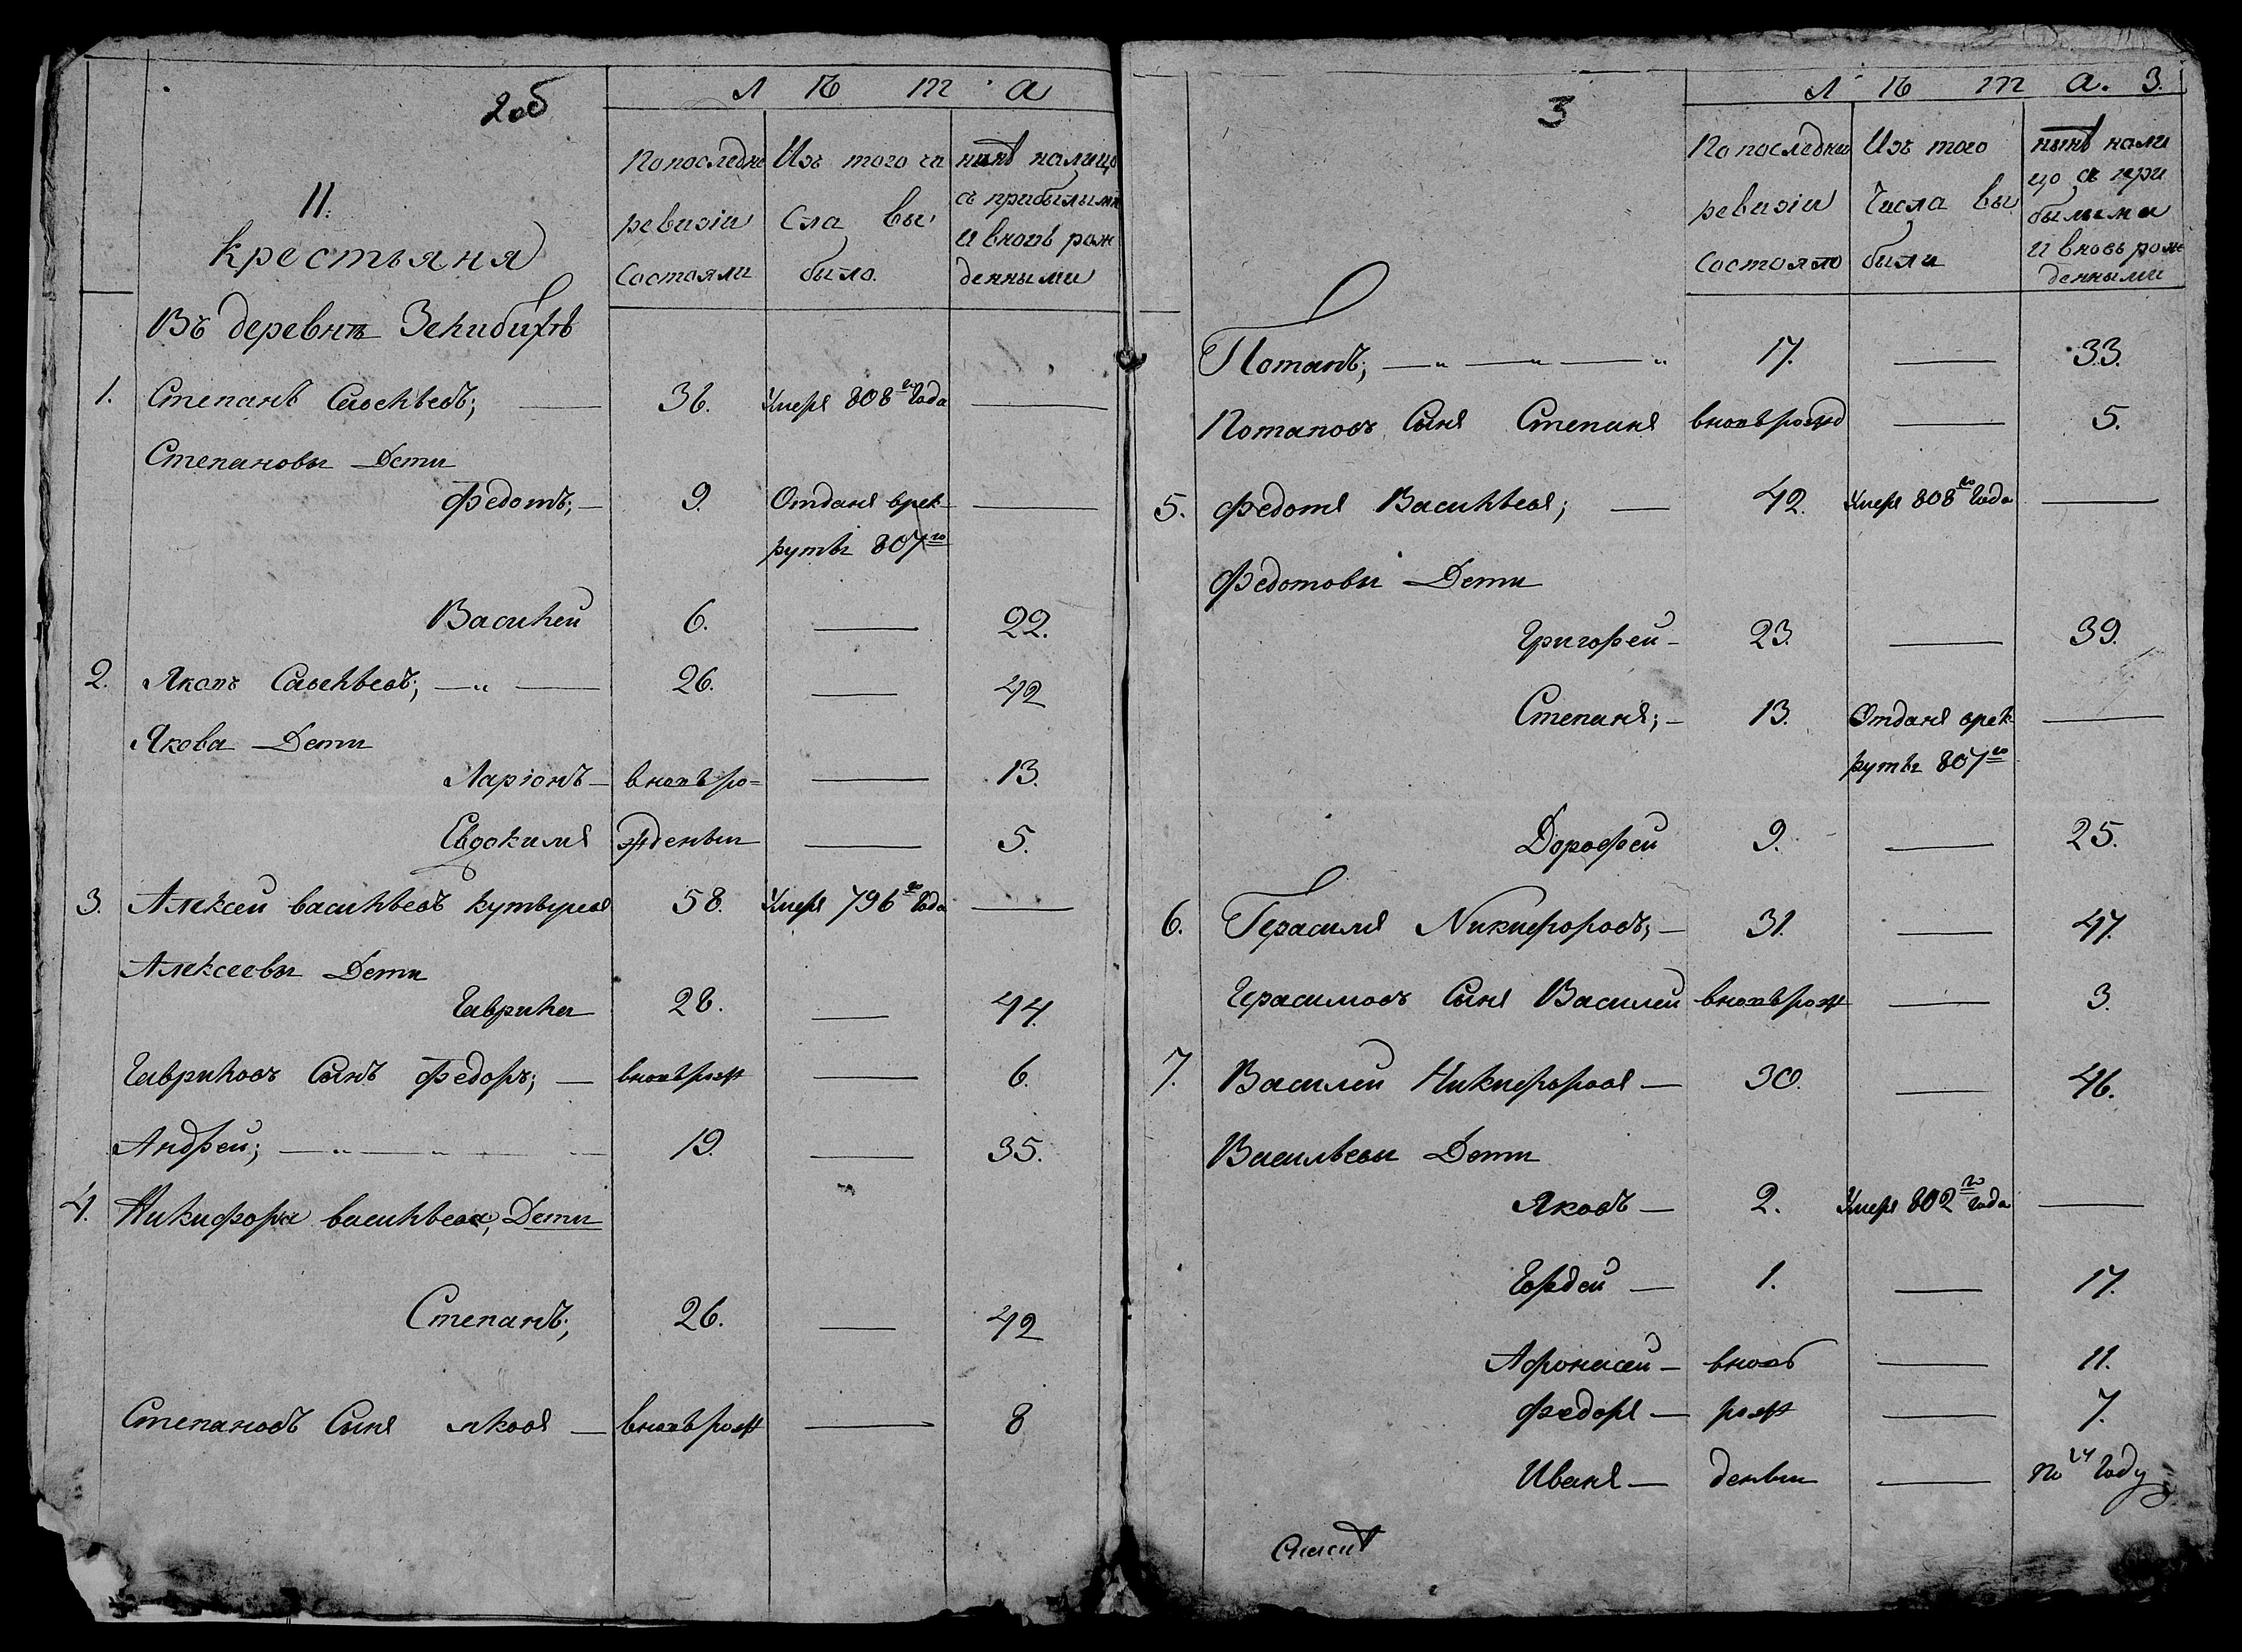 2об
Л Ѣ т а
II.
крестьяня
По последне Изъ того чи нынѣ налицо
съ прибылыми
ревизіи сла вы и вновь рож
состояли было. денными
Въ деревнѣ
1. Степанъ Савельевъ; — 36. Умеръ 808го Года —
Степановы Дети
Федотъ; — 9. Отданъ врек —
руты 807го
Василей 6. — 22.
2. Якопъ Савельевъ; — „ — 26. — 42
Якова Дети
Ларіонъ — вновь ро= — 13.
Евдокимъ жденыи — 5.
3. Алексей васильевъ 58. Умеръ 796го Года —
Алексеевы Дети
Гаврила 28. — 44.
Гавриловъ Сынъ Федоръ; — вновь рож — 6.
Андрей; — „ — „ — 19. — 35.
4. Никифора васильева, Дети
Степанъ; 26. — 42
Степановъ Сынъ яковъ — вновь рож — 8
3
Л Ѣ т а. 3.
По последней Изъ того нынѣ нали
цо съ при
ревизіи Числа вы былыми
состояло были и вновь рож
денными
Потапъ; — „ — „ — „ 17. — 33.
Потаповъ Сынъ Степанъ вновь рожд — 5.
5. Федотъ Васильевъ; — 42. Умеръ 808го Года —
Федотовы Дети
Григорей — 23. — 39.
Степанъ; — 13. Отданъ врек —
руты 807го
Дорофей 9. — 25.
6. Герасимъ Никифоровъ; — 31. — 47.
Герасимовъ Сынъ Василей вновь рож — 3.
7. Василей Никифоровъ — 30. — 46.
Васильевы Дети
Яковъ — 2. Умеръ 802го года —
Гордей — 1. — 17.
Афонасей — вновь — 11.
Федоръ — рож — 7.
Иванъ — деныи — по Году